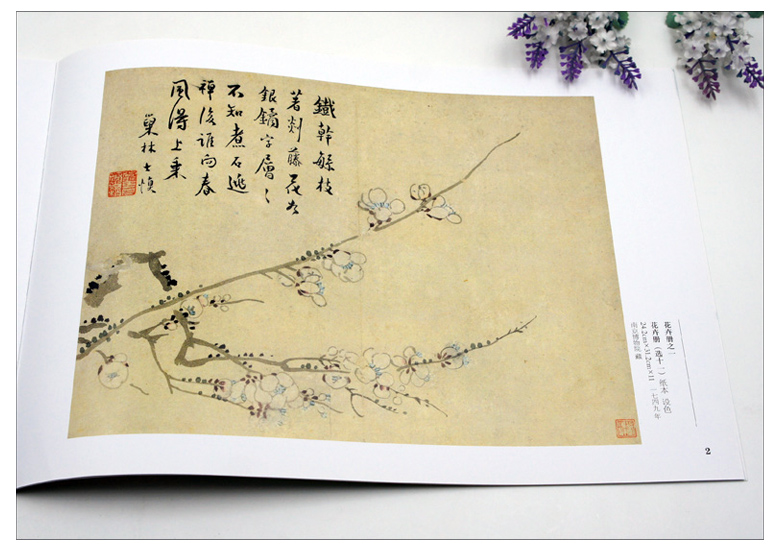 鐵幹緐枝
著剡藤花如
銀字層〻
不知煮石逃
禪後誰向春
風得上乘
巢林士慎
花卉册之一
花卉册（选十一） 纸本 设色 一七四九年
24.2cm×31.2cm×11
南京博物院 藏
2